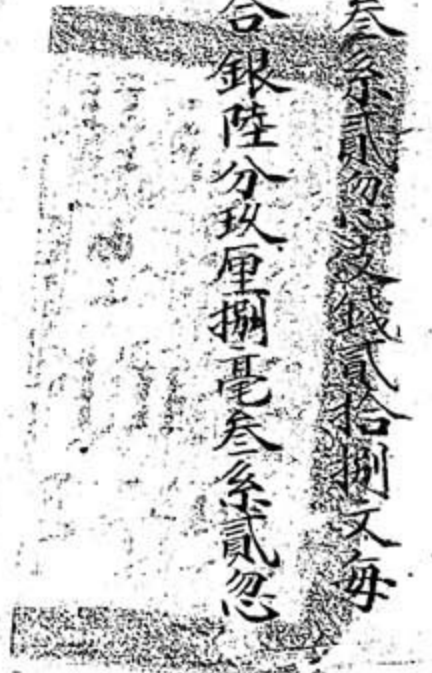 叁糸貳忽支錢貳拾捌文每
合銀陸分玖厘捌毫叁糸貳忽